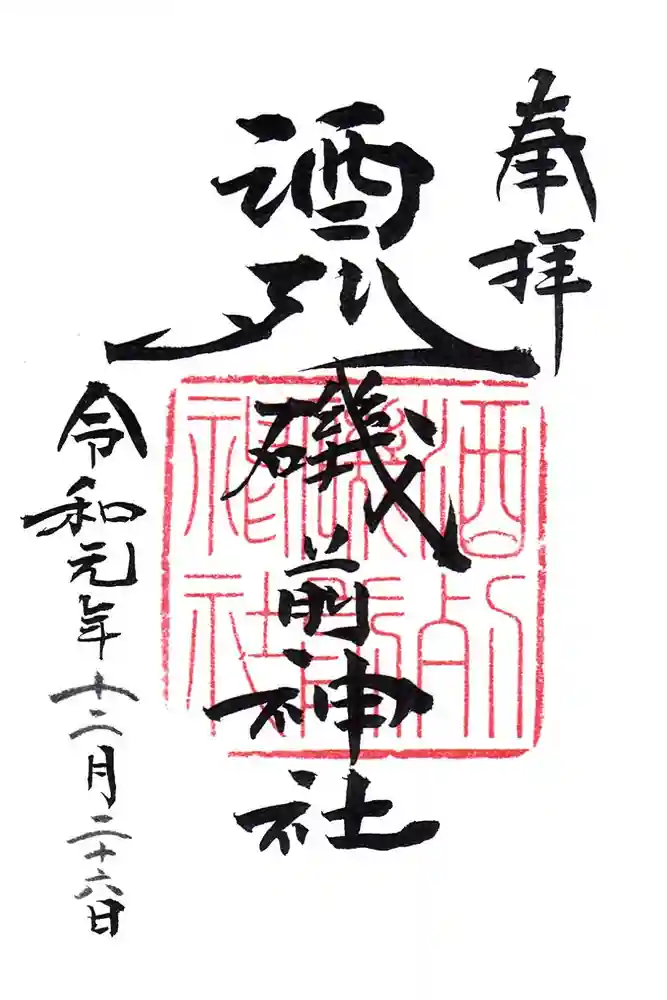 奉拝
酒列磯前神社
酒列磯前神社
令和元年十二月二十六日